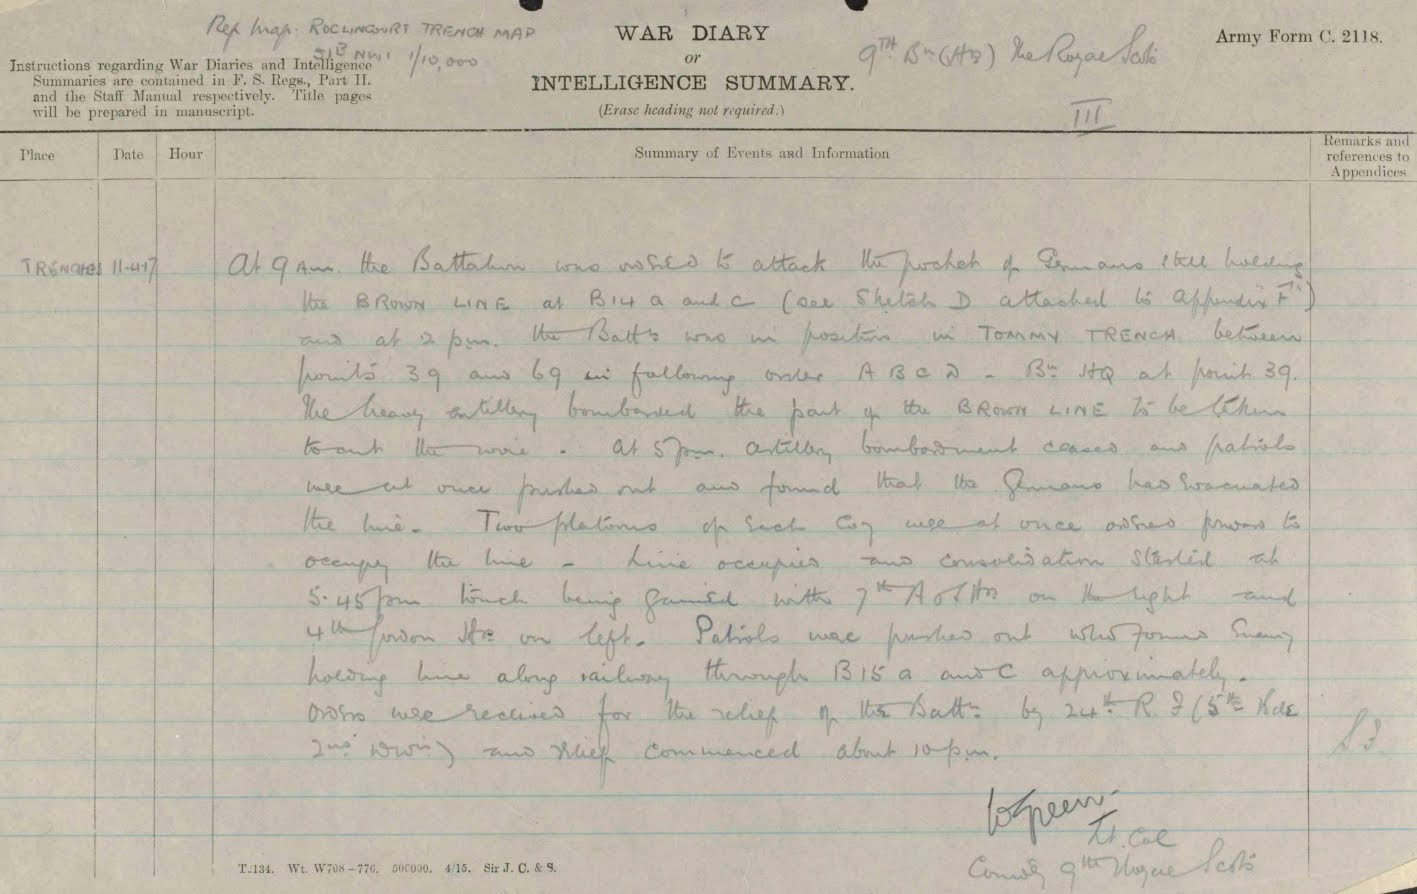 Ref Map. ROCLINCOURT TRENCH MAP
51B NW. 1/10,000
WAR DIARY
or
INTELLIGENCE SUMMARY.
(Erase heading not required.)
9TH Bn (Hrs) The Royal Scots
Army Form C. 2118.
III
Instructions regarding War Diaries and Intelligence
Summaries are contained in F. S. Regs., Part II.
and the Staff Manual respectively. Title pages
will be prepared in manuscript.
Place Date Hour Summary of Events and Information Remarks and
references to
Appendices
TRENCHES 11-4-17 At 9 Am. the Battalion was ordered to attack the pocket of Germans still holding
the BROWN LINE at B14 a and c (see Sketch D attached to appendix "F")
and at 2 pm. the Battn was in position in TOMMY TRENCH between
points 39 and 69 in following order A B C D - Bn HQ at point 39.
The heavy artillery bombarded the part of the BROWN LINE to be taken
to cut the wire. At 5 pm. artillery bombardment ceased and patrols
were at once pushed out and found that the Germans had evacuated
the line. Two platoons of each Coy were at once ordered forward to
occupy the line - Line occupied and consolidation started at
5.45 pm touch being gained with 7th A & S Hrs on the right and
4th Gordon Hrs on left. Patrols were pushed out who found Enemy
holding line along railway through B15 a and C approximately.
Orders were received for the relief of the Battn by 24th R F (5th Bde
2nd Divn) and relief commenced about 10 pm.
Green
Lt. Col
Comdg 9th Royal Scots
T.134. Wt. W708-776. 500000. 4/15. Sir J. C. & S.